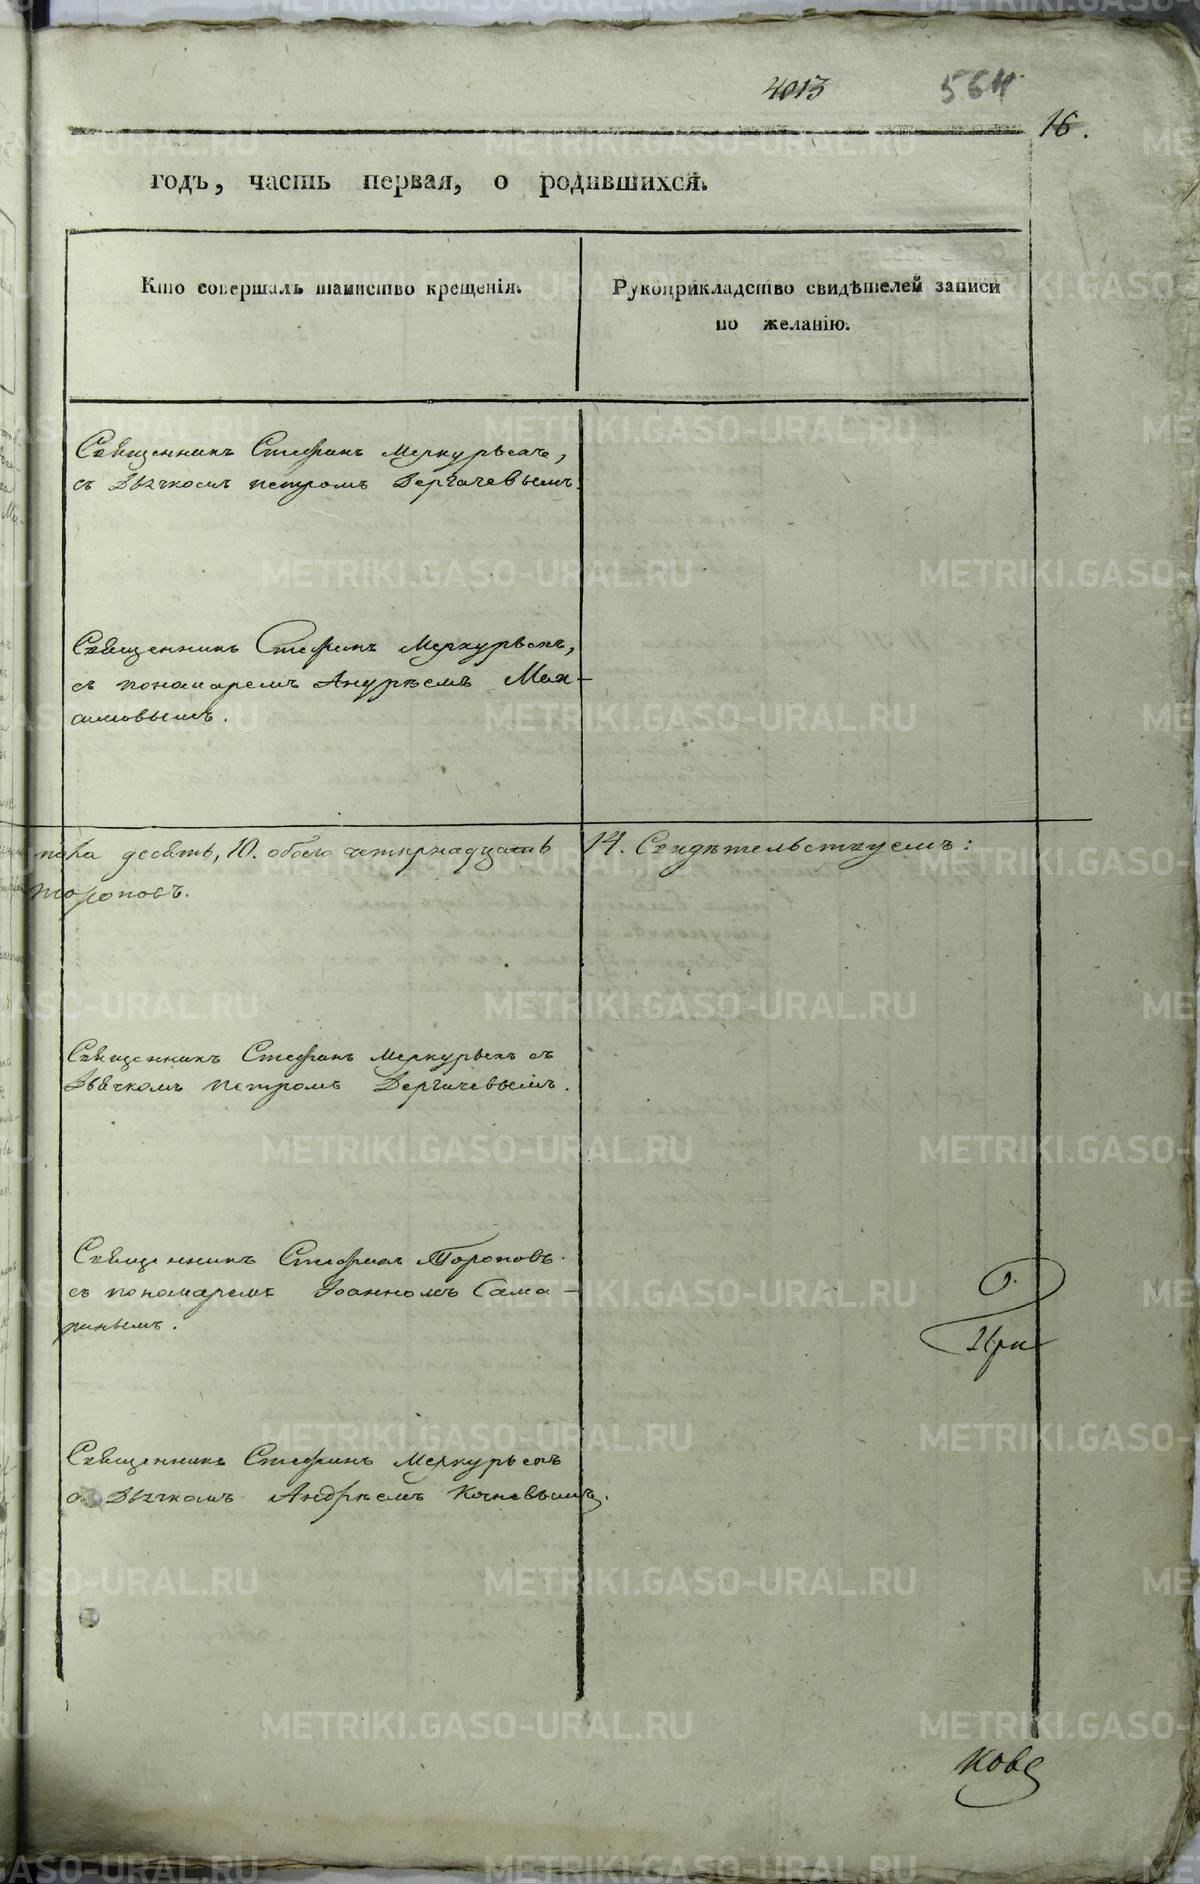 4013
564
16.
годъ, часть первая, о родившихся.
Кто совершалъ таинство крещенія.
Рукоприкладство свидѣтелей записи
по желанію.
Священникъ Стефанъ Меркурьевъ,
съ Дьячкомъ Петромъ Дергачевымъ.
Священникъ Стефанъ Меркурьевъ,
съ пономаремъ Андреемъ Мак-
симовымъ.
пола десять, 10. обоего четырнадцать 14. Свидѣтельствуемъ:
Тороповъ.
Священникъ Стефанъ Меркурьевъ съ
Дьячкомъ Петромъ Дергачевымъ.
Священникъ Стефанъ Тороповъ
съ пономаремъ Іоанномъ Сама-
ринымъ.
Священникъ Стефанъ Меркурьевъ
съ Дьячкомъ Андреемъ Кочневымъ.
ковъ
METRIKI.GASO-URAL.RU